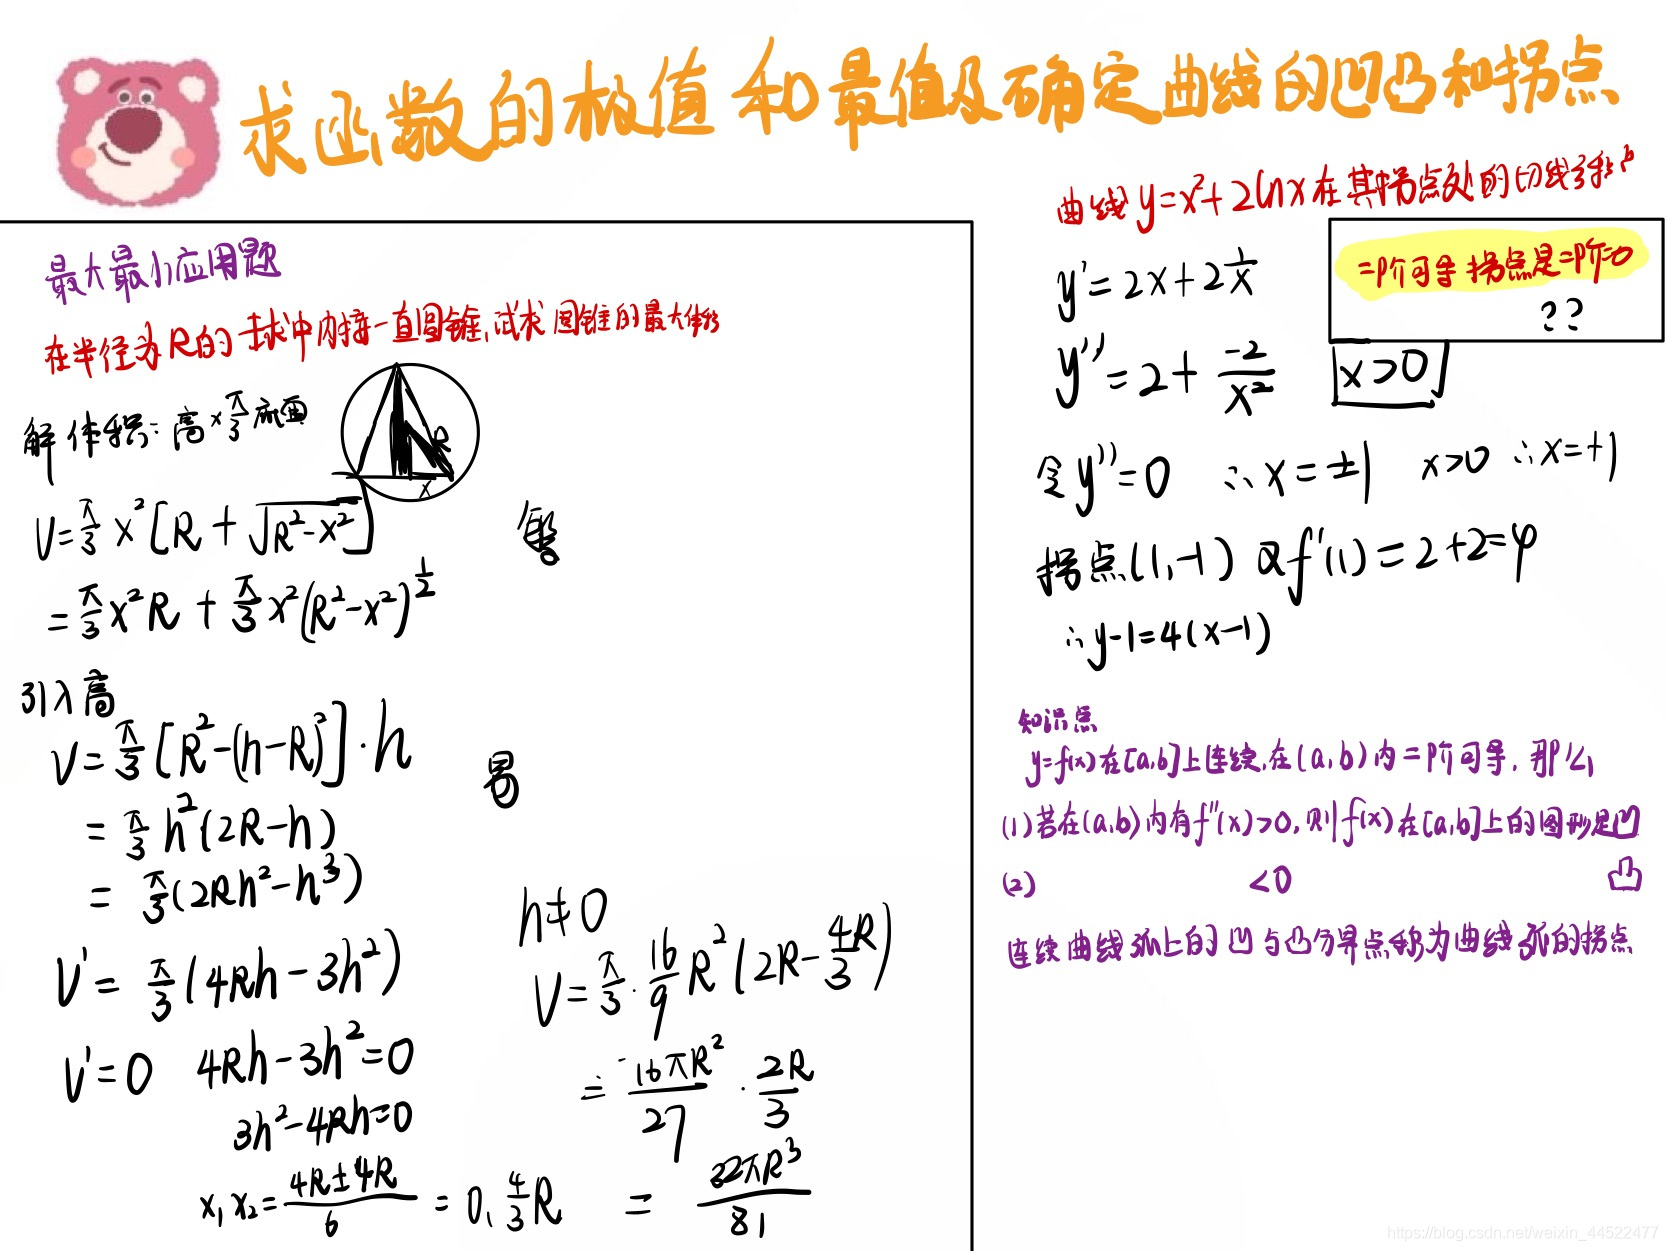 求函数的极值和最值及确定曲线的凹凸和拐点
最大最小应用题
在半径为R的球中内接一直圆锥,试求圆锥的最大体积
解 体积:高×π/3底面
R
x
V=π/3 x²[R+√(R²-x²)]
=π/3 x²R+π/3 x²(R²-x²)^(1/2)
引入高
V=π/3[R²-(h-R)²]·h
易
=π/3 h²(2R-h)
=π/3(2Rh²-h³)
V'=π/3(4Rh-3h²)
V'=0 4Rh-3h²=0
3h²-4Rh=0
x₁x₂=(4R±4R)/6=0,4/3R
h≠0
V=π/3·16/9R²(2R-4R/3)
=16πR²/27·2R/3
=32πR³/81
曲线y=x²+2lnx在其拐点处的切线
y'=2x+2 1/x
二阶可导 拐点是二阶=0
??
y''=2+-2/x²
x>0
令y''=0 ∴x=±1 x>0 ∴x=+1
拐点(1,-1) 又f'(1)=2+2=4
∴y-1=4(x-1)
知识点
y=f(x)在[a,b]上连续,在(a,b)内二阶可导,那么
(1)若在(a,b)内有f''(x)>0,则f(x)在[a,b]上的图形是凹
(2) <0 凸
连续曲线弧上的凹与凸分界点称为曲线弧的拐点
https://blog.csdn.net/weixin_44522477